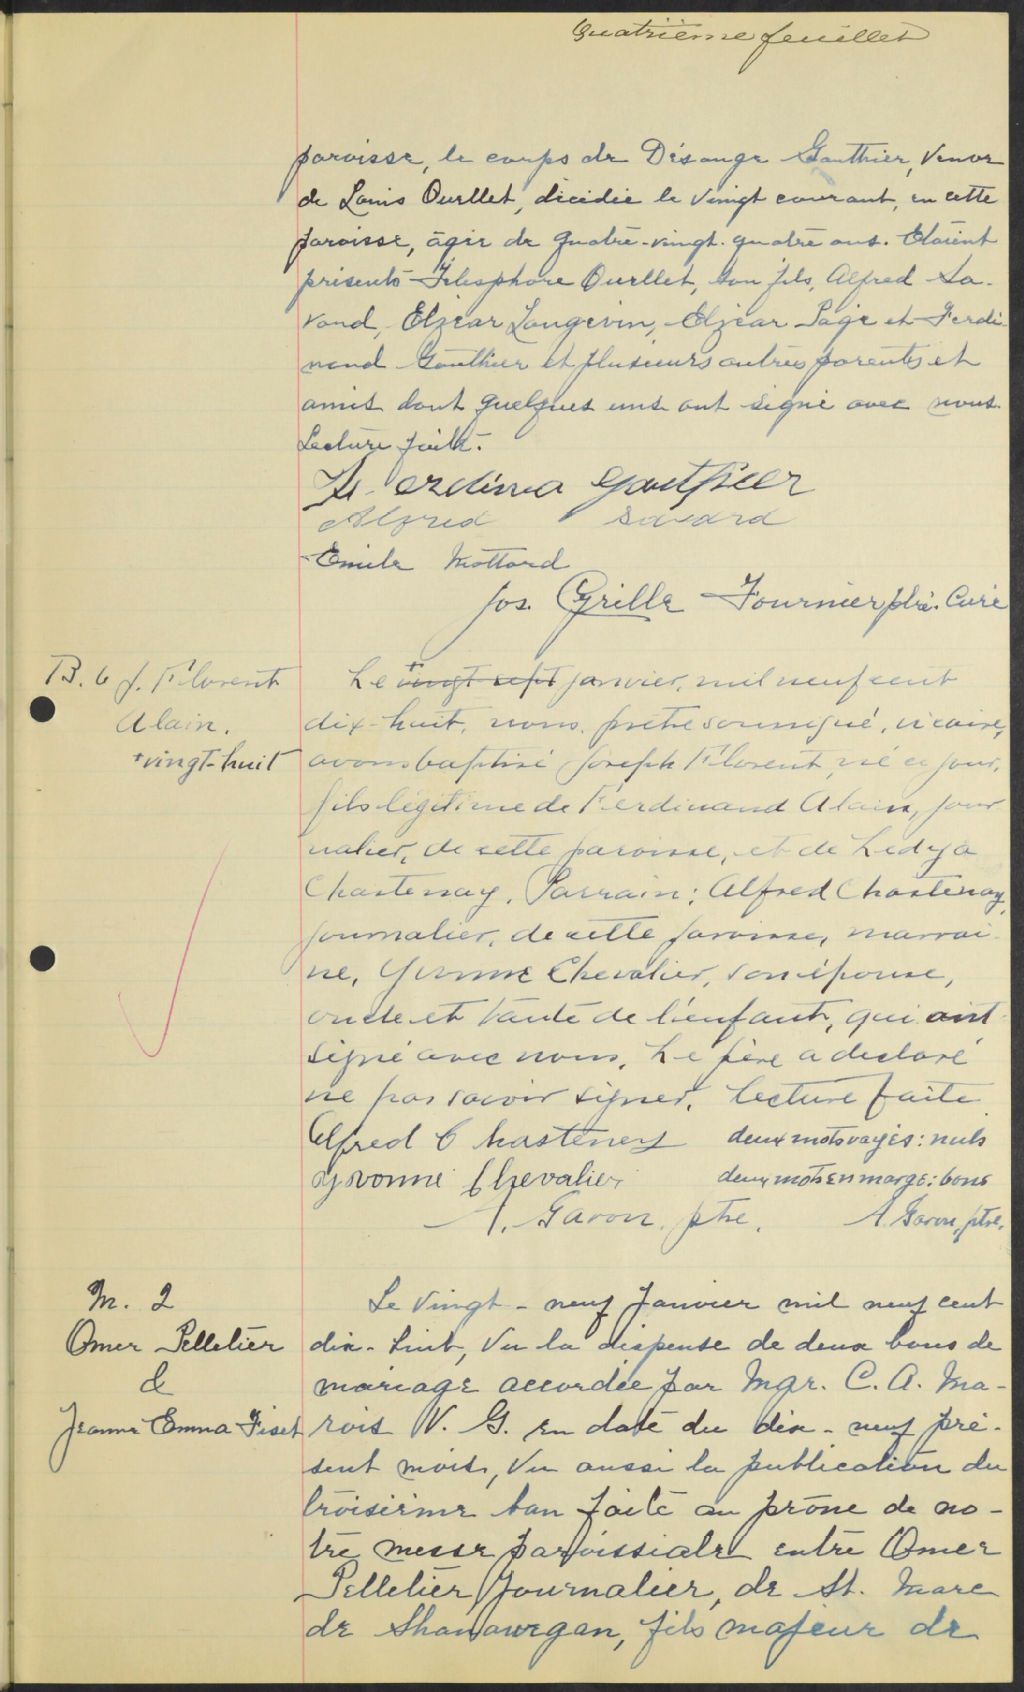 Quatrième feuillet
paroisse, le corps de Désange Gauthier, veuve
de Louis Ouellet, décédée le vingt courant, en cette
paroisse, âgée de quatre-vingt-quatre ans. Etaient
présents Télesphore Ouellet, son fils, Alfred Sa-
vard, Elzéar Langevin, Elzéar Pagé et Ferdi-
nand Gauthier et plusieurs autres parents et
amis dont quelques uns ont signé avec nous.
Lecture faite.
Gauthier
Alfred Savard
Emile Mottard
Jos. Cyrille Fournier ptre. Curé
B. 6 J. Florent
Alain.
+vingt-huit
Le + vingt sept janvier, mil neuf cent
dix-huit, nous, prêtre soussigné, vicaire,
avons baptisé Joseph Florent, né ce jour,
fils légitime de Ferdinand Alain, jour
nalier, de cette paroisse, et de Ledya
Chastenay. Parrain: Alfred Chastenay,
journalier, de cette paroisse, marrai-
ne, Yvonne Chevalier, son épouse,
oncle et tante de l'enfant, qui ont
signé avec nous. Le père a déclaré
ne pas savoir signer. Lecture faite.
Alfred Chasteney deux mots rayés: nuls
Yvonne Chevalier deux mots en marge: bons
A. Garon, ptre. A. Garon, ptre.
M. 2
Omer Pelletier
&
Jeanne Emma Fiset
Le vingt-neuf Janvier mil neuf cent
dix-huit, Vu la dispense de deux bans de
mariage accordée par Mgr. C. A. Ma-
rois V. G. en date du dix-neuf pré-
sent mois, Vu aussi la publication du
troisième ban faite au prône de no-
tre messe paroissiale entre Omer
Pelletier, Journalier, de St. Marc
de Shawinegan, fils majeur de